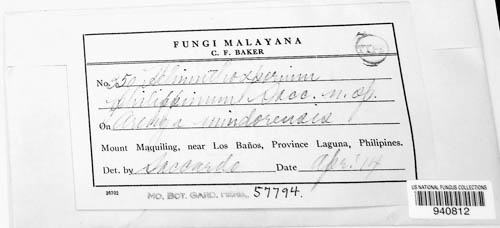 FUNGI MALAYANA
C. F. BAKER
TYPE
No. 350 Helminthosporium
philippinum Sacc. n. sp.
On Arenga mindorensis
Mount Maquiling, near Los Baños, Province Laguna, Philippines.
Det. by Saccardo Date Apr. '14
26702
MO. BOT. GARD. HERB. 57794.
US NATIONAL FUNGUS COLLECTIONS
940812